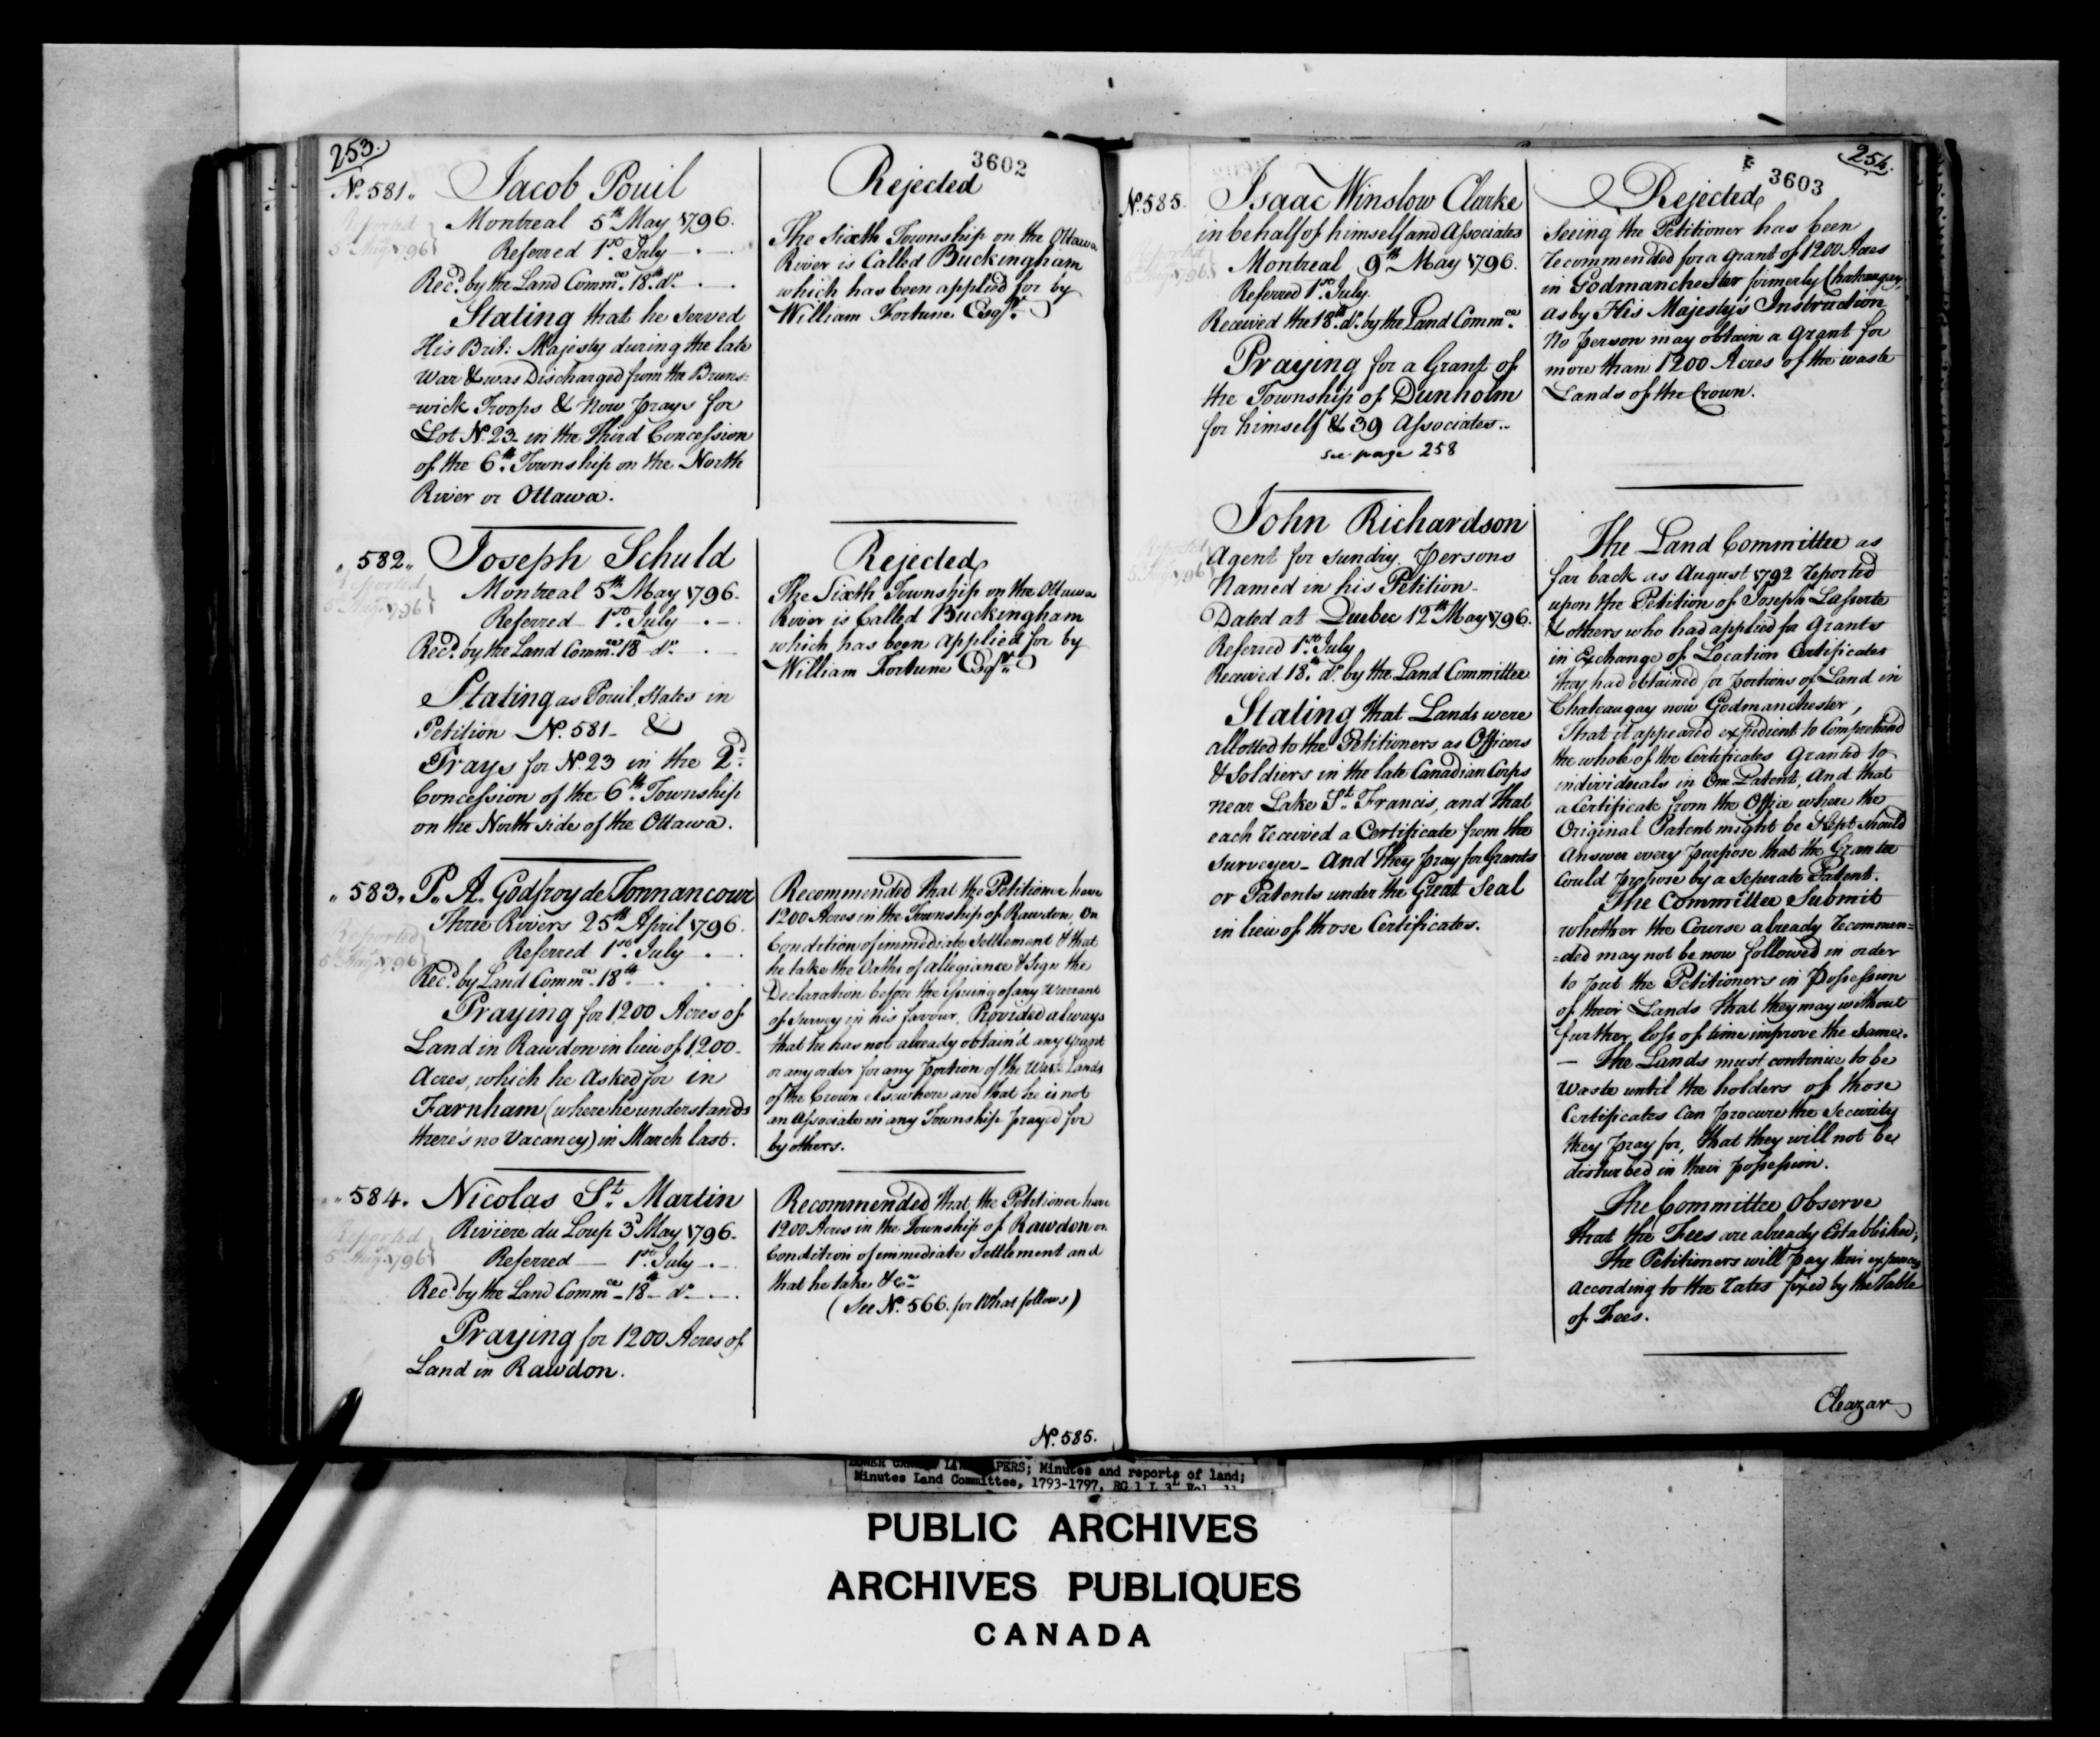 253.
3602
N.° 581.,
Jacob Pouil
Reported
5th Aug. 1796
Montreal 5th May 1796.
Referred 1st July
Rec.d by the Land Comm.ee 18th do.
Stating that he Served
His Brit: Majesty during the late
War & was Discharged from the Bruns=
=wick Troops & Now prays for
Lot N.° 23 in the Third Concession
of the 6th Township on the North
River or Ottawa.
Rejected
The Sixth Township on the Ottawa
River is Called Buckingham
which has been applied for by
William Fortune Esqr.
„ 582„
Joseph Schuld
Reported
5 Aug. 1796
Montreal 5th May 1796.
Referred 1st July
Rec.d by the Land Comm.ee 18th do.
Stating as Pouil, States in
Petition N.° 581 &
Prays for N.° 23 in the 2.d
Concession of the 6th Township
on the North side of the Ottawa.
Rejected
The Sixth Township on the Ottawa
River is Called Buckingham
which has been applied for by
William Fortune Esqr.
„ 583„
P. A. Godfroy de Tonnancour
Reported
5th Aug. 1796
Three Rivers 25th April 1796.
Referred 1st July
Rec.d by Land Comm.ee 18th
Praying for 1200 Acres of
Land in Rawdon in lieu of 1200
Acres, which he Asked for in
Farnham (where he understands
there's no Vacancy) in March last.
Recommended that the Petitioner have
1200 Acres in the Township of Rawdon, On
Condition of immediate Settlement & that
he take the Oaths of Allegiance & Sign the
Declaration before the issuing of any Warrant
of Survey in his favour, Provided always
that he has not already obtain'd any Grant
or any order for any portion of the Waste Lands
of the Crown elsewhere and that he is not
an Associate in any Township prayed for
by others.
„ 584.
Nicolas St. Martin
Reported
5 Aug. 1796
Riviere du Loup 3d May 1796.
Referred 1st July
Rec.d by the Land Comm.ee 18th do.
Praying for 1200 Acres of
Land in Rawdon.
Recommended that the Petitioner have
1200 Acres in the Township of Rawdon on
Condition of immediate Settlement and
that he take &c.
(See N.° 566. for What follows)
N.° 585.
254.
3603
N.° 585.
Isaac Winslow Clarke
in behalf of himself and Associates
Reported
1796
Montreal 9th May 1796.
Referred 1st July.
Received the 18th do. by the Land Comm.ee
Praying for a Grant of
the Township of Dunholm
for himself & 39 Associates.
see page 258
Rejected
Seeing the Petitioner has been
recommended for a grant of 1200 Acres
in Godmanchester formerly Chateaugay,
As by His Majesty's Instruction
No person may obtain a Grant for
more than 1200 Acres of the waste
Lands of the Crown.
John Richardson
Agent for sundry persons
Reported
1796
Named in his Petition
Dated at Quebec 12th May 1796.
Referred 1st July
Received 18th do. by the Land Committee
Stating that Lands were
allotted to the Petitioners as Officers
& Soldiers in the late Canadian Corps
near Lake St. Francis, and that
each received a Certificate from the
Surveyer And they pray for Grants
or Patents under the Great Seal
in lieu of those Certificates.
The Land Committee as
far back as August 1792 reported
upon the Petition of Joseph Laferte
& others who had applied for Grants
in Exchange of Location Certificates
they had obtained for portions of Land in
Chateaugay now Godmanchester,
That it appeared expedient to Comprehend
the whole of the Certificates Granted to
individuals in One Patent, And that
a Certificate from the Office where the
Original Patent might be kept should
Answer every purpose that the Grantee
could propose by a Seperate Patent.
The Committee Submit
whether the Course already recommen=
=ded may not be now followed in order
to put the Petitioners in Possession
of their Lands that they may without
further loss of time improve the same.
— The Lands must continue to be
Waste until the holders of those
Certificates can procure the Security
they pray for, that they will not be
disturbed in their possession.
The Committee Observe
that the Fees are already Established,
The Petitioners will pay their expences
according to the rates fixed by the Table
of Fees.
Eleazar
LOWER CANADA LAND PAPERS; Minutes and reports of land;
Minutes Land Committee, 1793-1797, RG 1 L 3L Vol. 11
PUBLIC ARCHIVES
ARCHIVES PUBLIQUES
CANADA